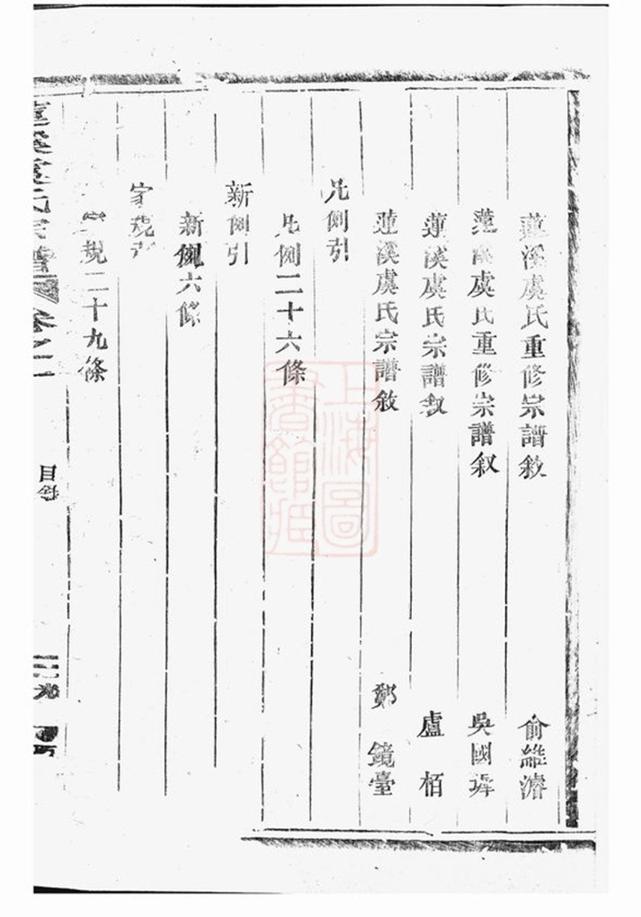 蓮溪虞氏重修宗譜敘 俞維濬
蓮溪虞氏重修宗譜叙 吳國
蓮溪虞氏宗譜叙 盧栢
蓮溪虞氏宗譜敘 鄭鏡臺
凡例引
凡例二十六條
新例引
新例六條
家規引
家規二十九條
蓮溪虞氏宗譜 卷之一 目錄
上海圖書館藏